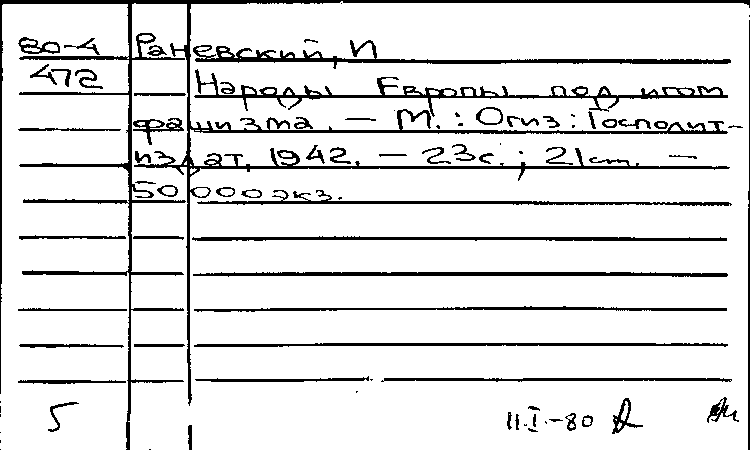 80-4 Раневский, И
472 Народы Европы под игом
фашизма. — М. : Огиз : Госполит-
издат, 1942. — 23с. ; 21 cm. —
50 000 экз.
5 11.I.-80